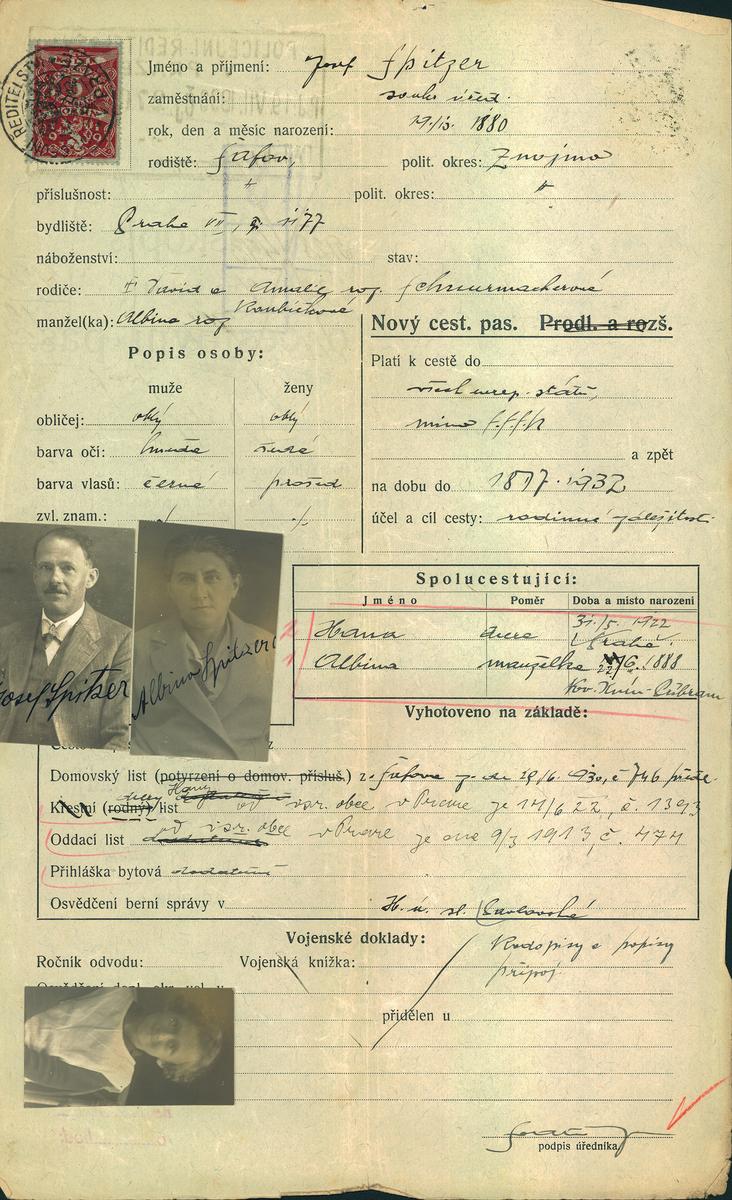 Jméno a přijmení: Josef Spitzer
zaměstnání: soukr. úřed.
rok, den a měsíc narození: 1880
rodiště: Šafov, polit. okres: Znojmo
příslušnost: " polit. okres: "
bydliště: Praha VII, 1177
náboženství: stav:
rodiče: † David a Amalie roz. Schnurmacherová
manžel(ka): Albina roz. Koubíčková
Nový cest. pas. Prodl. a rozš.
Popis osoby:
muže ženy
obličej: oblý oblý
barva očí: hnědé šedé
barva vlasů: černé prošed.
zvl. znam.: ./. ./.
Platí k cestě do
všech evrop. států,
mimo S.S.S.R.
a zpět
na dobu do 1937
účel a cíl cesty: rodinné záležitosti
Josef Spitzer
Albina Spitzer
Spolucestující:
Jméno Poměr Doba a místo narození
Hana dcera 31./5. 1922
Praha
Albina manželka 6. 1888
Kov. Knín-Příbram
Vyhotoveno na základě:
Domovský list (potvrzení o domov. přísluš.) z Šafova č 746
Křestní (rodný) list dcery Hany od isr. obce v Praze ze 14/6 22, č. 1393
Oddací list od isr. obce v Praze ze dne 9/3 1913, č. 474
Přihláška bytová
Osvědčení berní správy v
Vojenské doklady:
Ročník odvodu: Vojenská knížka:
Rodopisy a popisy
připoj.
přidělen u
podpis úředníka